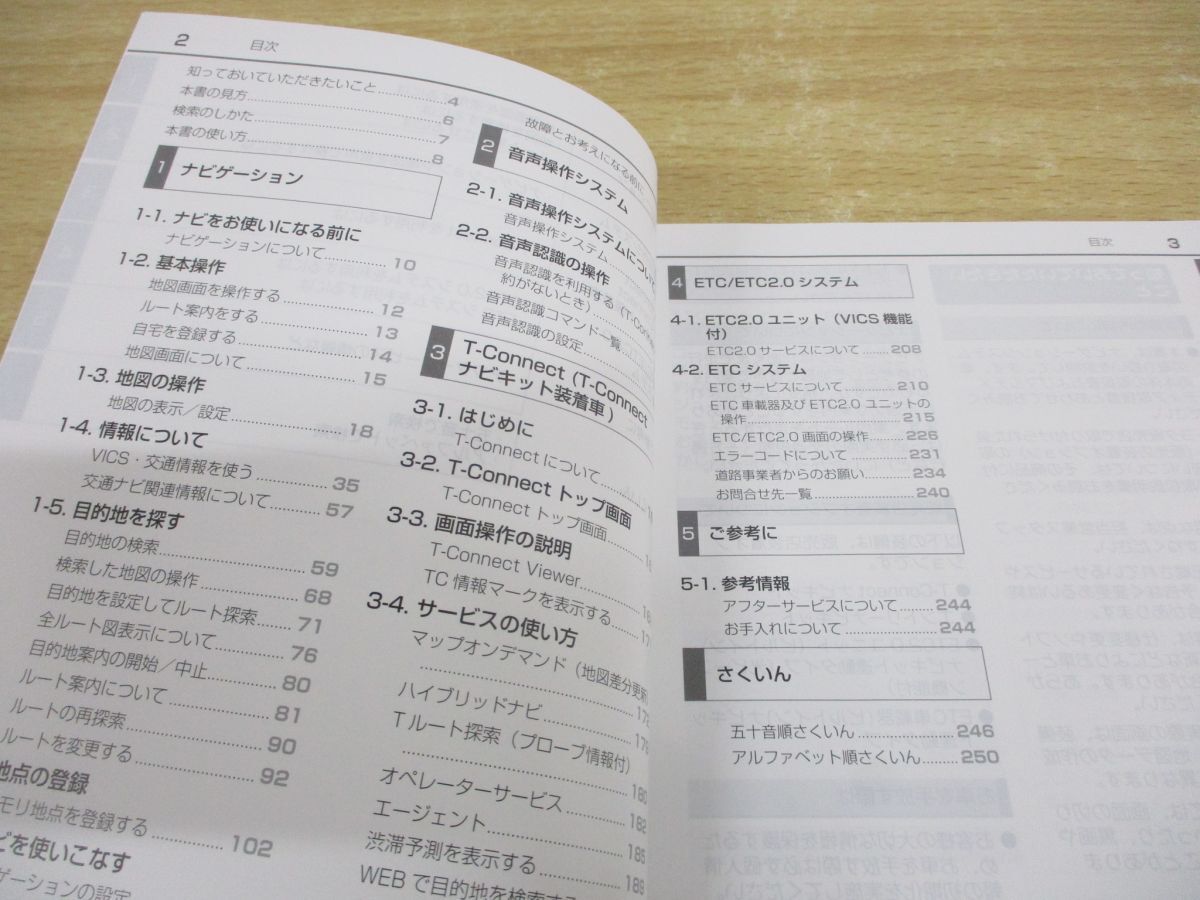 2 目次
知っておいていただきたいこと..................4
本書の見方..................6
検索のしかた..................7
本書の使い方..................8
1 ナビゲーション
1-1. ナビをお使いになる前に
ナビゲーションについて..................10
1-2. 基本操作
地図画面を操作する..................12
ルート案内をする..................13
自宅を登録する..................14
地図画面について..................15
1-3. 地図の操作
地図の表示／設定..................18
1-4. 情報について
VICS・交通情報を使う..................35
交通ナビ関連情報について..................57
1-5. 目的地を探す
目的地の検索..................59
検索した地図の操作..................68
目的地を設定してルート探索..................71
全ルート図表示について..................76
目的地案内の開始／中止..................80
ルート案内について..................81
ルートの再探索..................90
ルートを変更する..................92
地点の登録
モリ地点を登録する..................102
を使いこなす
ゲーションの設定
故障とお考えになる前に
2 音声操作システム
2-1. 音声操作システムについて
音声操作システム
2-2. 音声認識の操作
音声認識を利用する（T-Conne
約がないとき）
音声認識コマンド一覧
音声認識の設定
3 T-Connect（T-Connect
ナビキット装着車）
3-1. はじめに
T-Connect について
3-2. T-Connect トップ画面
T-Connect トップ画面
3-3. 画面操作の説明
T-Connect Viewer
TC 情報マークを表示する
3-4. サービスの使い方
マップオンデマンド（地図差分更新）
ハイブリッドナビ
T ルート探索（プローブ情報付）
..................180
オペレーターサービス..................182
エージェント..................185
渋滞予測を表示する..................189
WEB で目的地を検索する
目次 3
4 ETC/ETC2.0 システム
4-1. ETC2.0 ユニット（VICS 機能
付）
ETC2.0 サービスについて........208
4-2. ETC システム
ETC サービスについて..................210
ETC 車載器及び ETC2.0 ユニットの
操作..................215
ETC/ETC2.0 画面の操作........226
エラーコードについて..................231
道路事業者からのお願い..........234
お問合せ先一覧..................240
5 ご参考に
5-1. 参考情報
アフターサービスについて..........244
お手入れについて..................244
さくいん
五十音順さくいん..................246
アルファベット順さくいん.........250